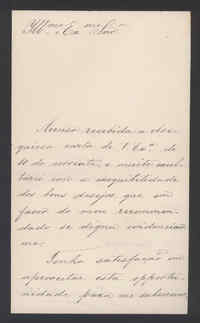 Illmo e Exmo Snr.
Accuso recebida a obse-
quiosa carta de V. Exa. de
10 do corrente, e muito
a inexequibilidade
dos bons desejos, que em
favor do meu recommen-
dado se digna evidenciar-
me.
Tenho satisfação em
aproveitar esta opportu-
nidade para me subscrever,